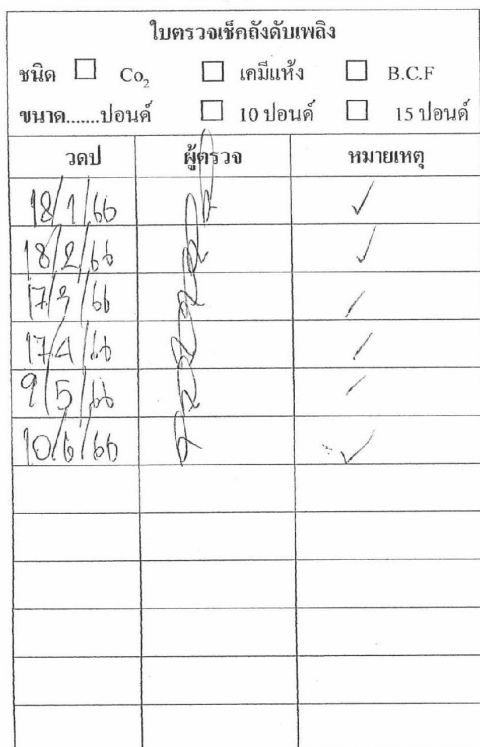 ใบตรวจเช็คถังดับเพลิง
ชนิด ☐ Co₂ ☐ เคมีแห้ง ☐ B.C.F
ขนาด.......ปอนด์ ☐ 10 ปอนด์ ☐ 15 ปอนด์
วดป ผู้ตรวจ หมายเหตุ
18/1/66 ✓
18/2/66 ✓
17/3/66 ✓
17/4/66 ✓
9/5/66 ✓
10/6/66 ✓